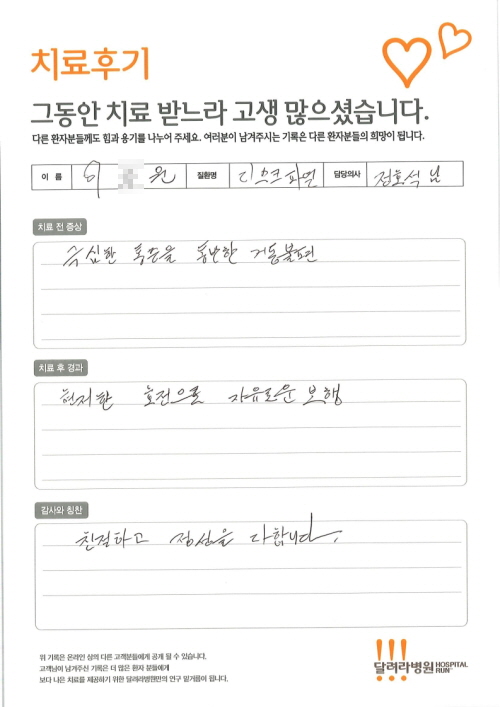 치료후기
그동안 치료 받느라 고생 많으셨습니다.
다른 환자분들께도 힘과 용기를 나누어 주세요. 여러분이 남겨주시는 기록은 다른 환자분들의 희망이 됩니다.
이 름 원 질환명 디스크파열 담당의사 정호석 님
치료 전 증상
극심한 통증을 동반한 거동불편
치료 후 경과
현저한 호전으로 자유로운 보행
감사와 칭찬
친절하고 정성을 다합니다.
위 기록은 온라인 상의 다른 고객분들에게 공개 될 수 있습니다.
고객님이 남겨주신 기록은 더 많은 환자 분들에게
보다 나은 치료를 제공하기 위한 달려라병원만의 연구 밑거름이 됩니다.
!!!
달려라병원 HOSPITAL RUN